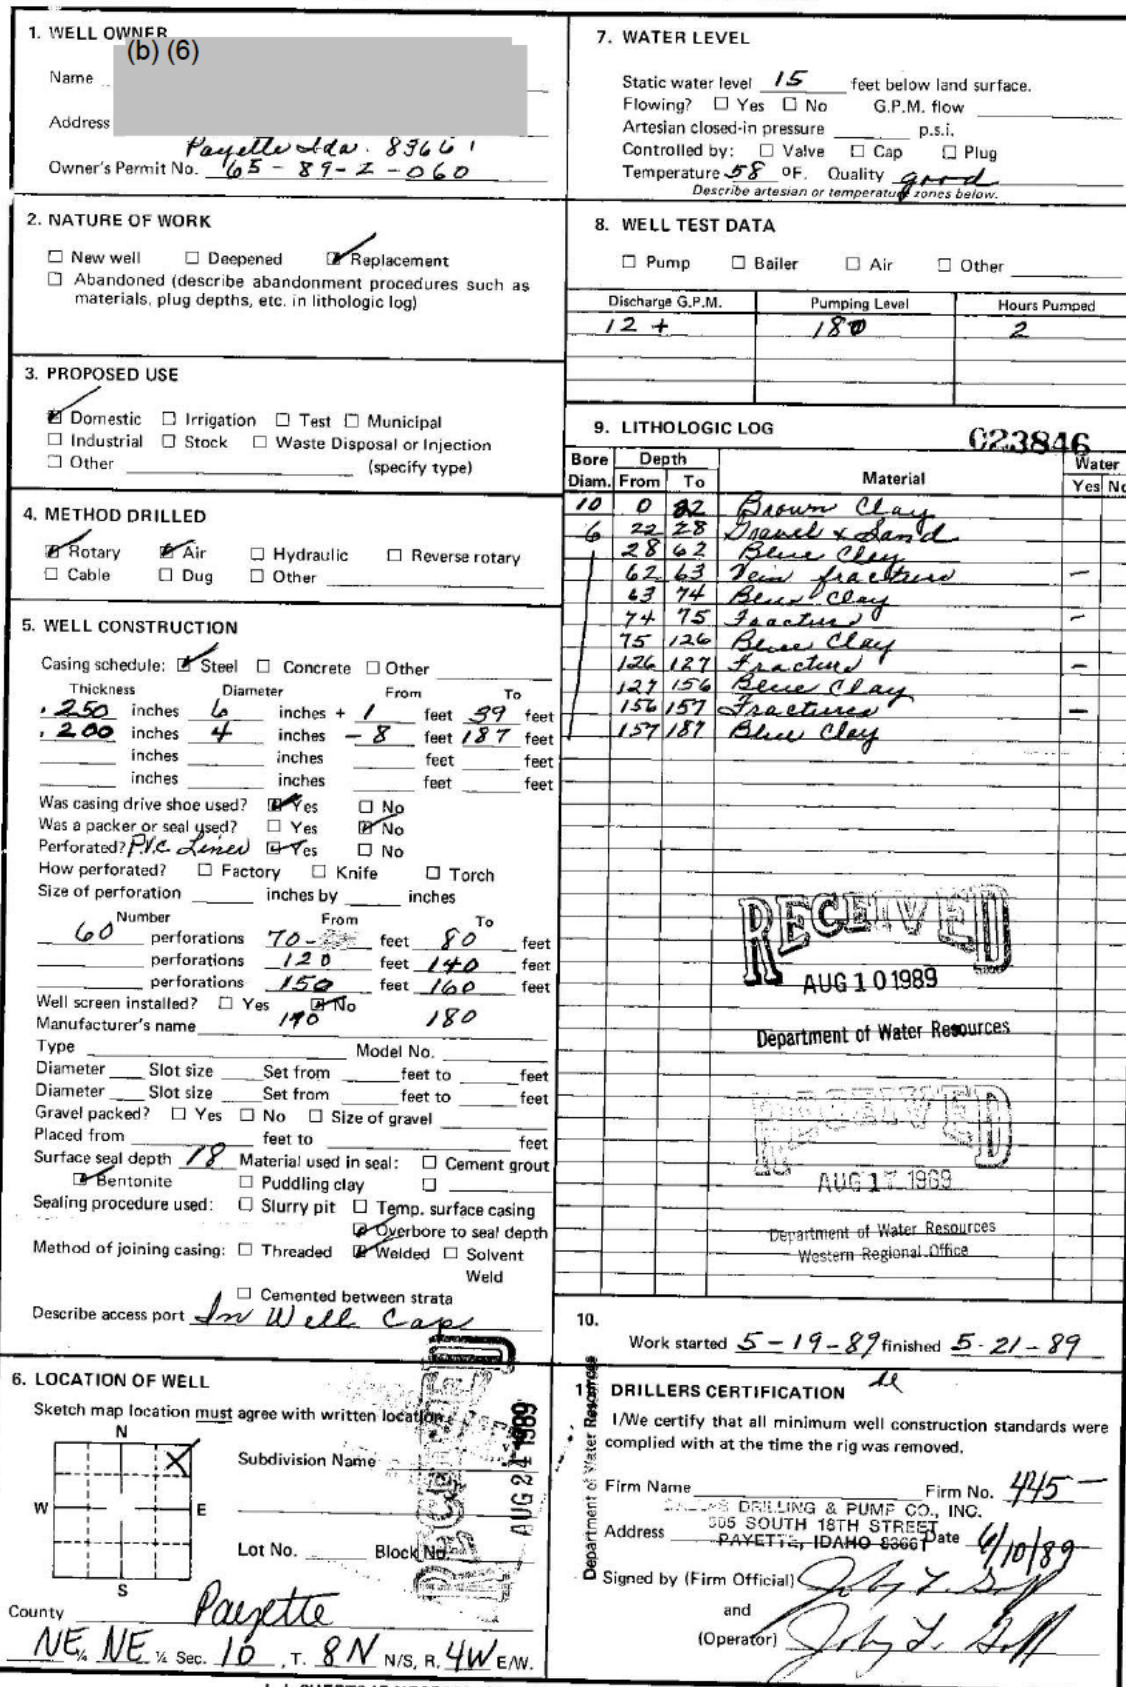 1. WELL OWNER
(b) (6)
Name
Address
Payette Ida. 83661
Owner's Permit No. 65-89-2-060
2. NATURE OF WORK
☐ New well ☐ Deepened ☑ Replacement
☐ Abandoned (describe abandonment procedures such as
materials, plug depths, etc. in lithologic log)
3. PROPOSED USE
☑ Domestic ☐ Irrigation ☐ Test ☐ Municipal
☐ Industrial ☐ Stock ☐ Waste Disposal or Injection
☐ Other (specify type)
4. METHOD DRILLED
☑ Rotary ☑ Air ☐ Hydraulic ☐ Reverse rotary
☐ Cable ☐ Dug ☐ Other
5. WELL CONSTRUCTION
Casing schedule: ☑ Steel ☐ Concrete ☐ Other
Thickness Diameter From To
.250 inches 6 inches + 1 feet 39 feet
.200 inches 4 inches - 8 feet 187 feet
inches inches feet feet
inches inches feet feet
Was casing drive shoe used? ☑ Yes ☐ No
Was a packer or seal used? ☐ Yes ☑ No
Perforated? P.V.C Liner ☑ Yes ☐ No
How perforated? ☐ Factory ☐ Knife ☐ Torch
Size of perforation inches by inches
Number From To
60 perforations 70- feet 80 feet
perforations 120 feet 140 feet
perforations 150 feet 160 feet
Well screen installed? ☐ Yes ☑ No
180
Manufacturer's name
Type Model No.
Diameter Slot size Set from feet to feet
Diameter Slot size Set from feet to feet
Gravel packed? ☐ Yes ☐ No ☐ Size of gravel
Placed from feet to feet
Surface seal depth 18 Material used in seal: ☐ Cement grout
☑ Bentonite ☐ Puddling clay ☐
Sealing procedure used: ☐ Slurry pit ☐ Temp. surface casing
☑ Overbore to seal depth
Method of joining casing: ☐ Threaded ☑ Welded ☐ Solvent
Weld
☐ Cemented between strata
Describe access port In Well Cap
6. LOCATION OF WELL
Sketch map location must agree with written location.
N
W E
S
X
Subdivision Name
Lot No. Block No.
County Payette
NE ¼ NE ¼ Sec. 10, T. 8N N/S, R. 4W E/W.
RECEIVED
AUG 24 1989
Department of Water Resources
7. WATER LEVEL
Static water level 15 feet below land surface.
Flowing? ☐ Yes ☐ No G.P.M. flow
Artesian closed-in pressure p.s.i.
Controlled by: ☐ Valve ☐ Cap ☐ Plug
Temperature 58 °F. Quality good
Describe artesian or temperature zones below.
8. WELL TEST DATA
☐ Pump ☐ Bailer ☐ Air ☐ Other
Discharge G.P.M. Pumping Level Hours Pumped
12 + 180 2
9. LITHOLOGIC LOG
023846
Bore Depth Water
Diam. From To Material Yes No
10 0 22 Brown Clay
6 22 28 Gravel & Sand
28 62 Blue Clay
62 63 Vein fractured –
63 74 Blue Clay
74 75 Fractured –
75 126 Blue Clay
126 127 Fractured –
127 156 Blue Clay
156 157 Fractured –
157 187 Blue Clay
RECEIVED
AUG 10 1989
Department of Water Resources
RECEIVED
AUG 17 1989
Department of Water Resources
Western Regional Office
10.
Work started 5-19-89 finished 5-21-89
11. DRILLERS CERTIFICATION
I/We certify that all minimum well construction standards were
complied with at the time the rig was removed.
Firm Name Firm No. 445
DRILLING & PUMP CO., INC.
505 SOUTH 18TH STREET
Address PAYETTE, IDAHO 83661 Date 6/10/89
Signed by (Firm Official)
and
(Operator)